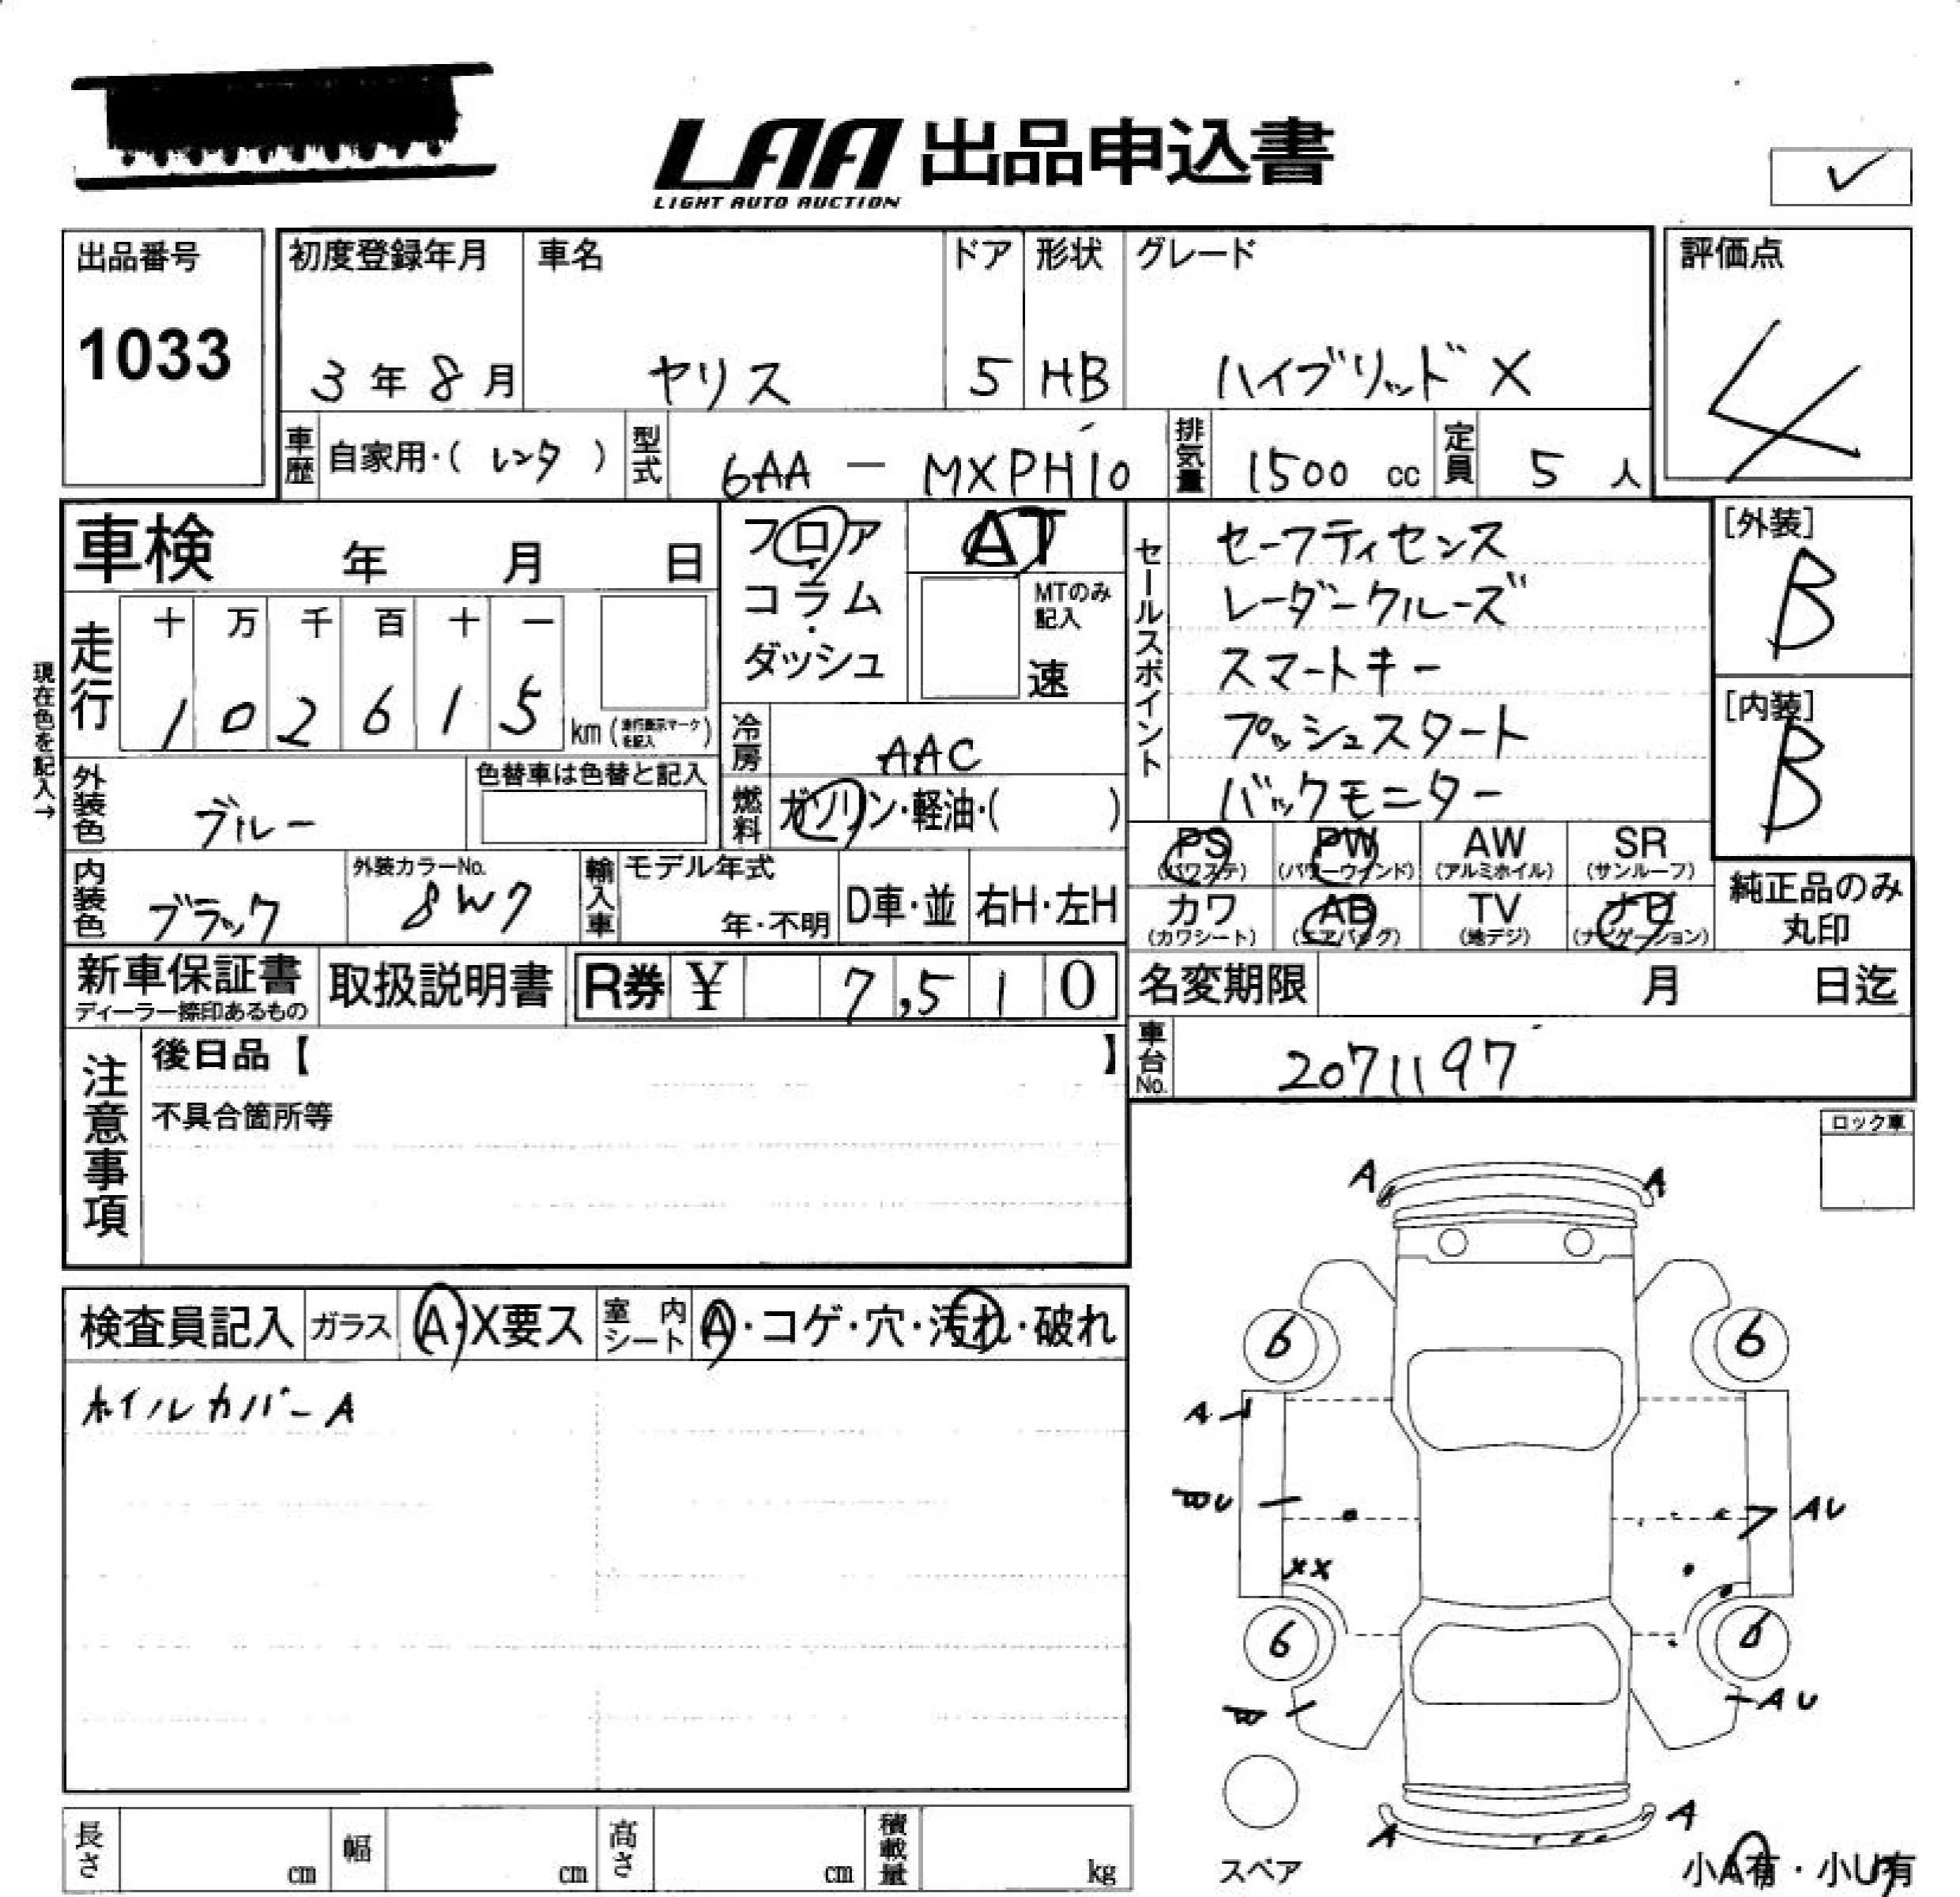 LAA 出品申込書
LIGHT AUTO AUCTION
出品番号
1033
初度登録年月 車名 ドア 形状 グレード
3年8月 ヤリス 5 HB ハイブリッド X
評価点
4
車歴 自家用・( レンタ ) 型式 6AA — MXPH10 排気量 1500 cc 定員 5 人
車検 年 月 日
フロア
コラム
ダッシュ
AT
MTのみ
記入
速
現在色を記入→
走行 十 万 千 百 十 一
1 0 2 6 1 5 km (走行表示マークを記入)
冷房 AAC
燃料 ガソリン・軽油・( )
外装色 ブルー 色替車は色替と記入
内装色 ブラック 外装カラーNo. 8W7
輸入車 モデル年式 年・不明 D車・並 右H・左H
セールスポイント
セーフティセンス
レーダークルーズ
スマートキー
プッシュスタート
バックモニター
[外装]
B
[内装]
B
PS (パワステ) PW (パワーウインド) AW (アルミホイル) SR (サンルーフ)
カワ (カワシート) AB (エアバッグ) TV (地デジ) ナビ (ナビゲーション)
純正品のみ
丸印
新車保証書
ディーラー捺印あるもの
取扱説明書
R券 ¥ 7,510
名変期限 月 日迄
車台No. 2071197
注意事項
後日品【 】
不具合箇所等
ロック車
検査員記入 ガラス A・X要ス 室内シート A・コゲ・穴・汚れ・破れ
ホイルカバーA
A A
6 6
A
U AU
XX
6 6
AU
A A
スペア
小A有・小U有
長さ cm 幅 cm 高さ cm 積載量 kg